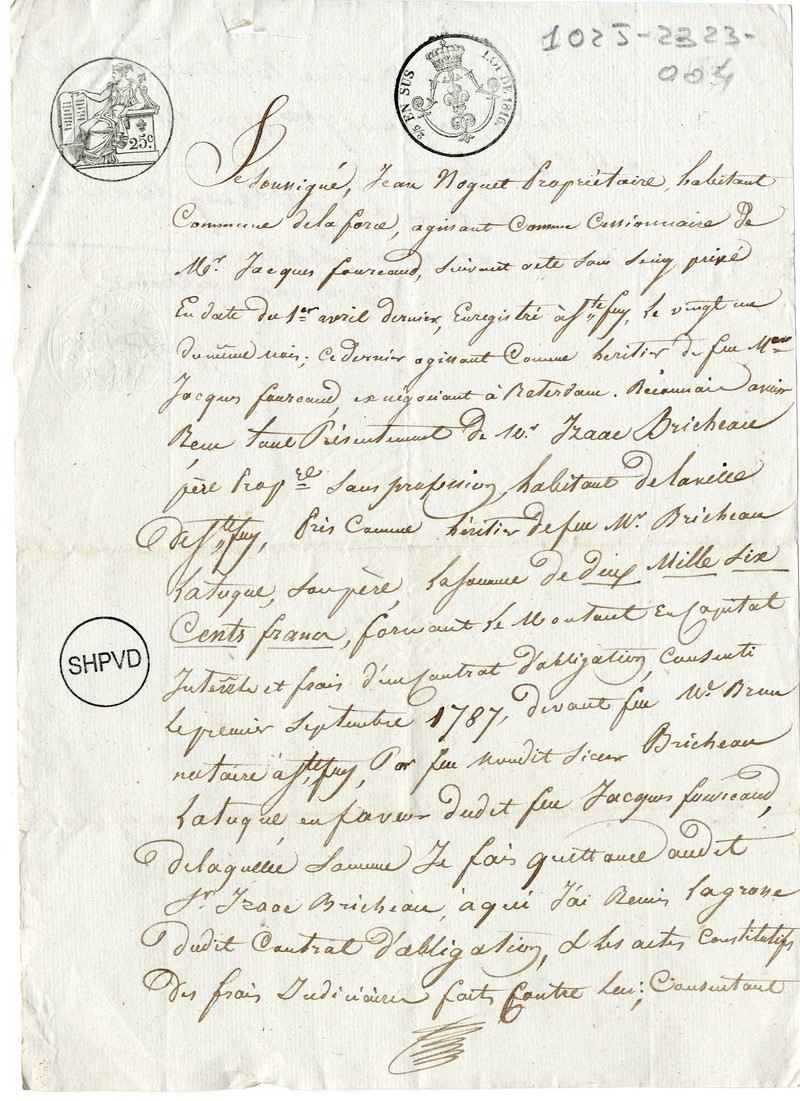 1025-2323-
004
25 EN SUS
LOI DE 1816.
25c
Je Soussigné, Jean Noguet Propriétaire, habitant
Commune de laforce, agissant Comme Cessionnaire De
Mr. Jacques fourcaud, suivant acte sous seing privé
En date du 1er avril dernier, Enregistré à Ste foy, Le vingt un
du même mois; ce dernier agissant Comme héritier de feu
Jacques fourcaud, ex négociant à Roterdam. Reconnais avoir
Reçu tout Présentement de Mr. Izaac Bricheau
père Propre sans profession, habitant de laville
de Ste foy, Pris Comme héritier de feu Mr. Bricheau
Latuque, son père, La Somme de deux Mille Six
Cents francs, formant Le Montant En Capital
Interêts et frais d'un Contrat d'obligation, Consenti
Le premier Septembre 1787, devant feu Mr. Brun
notaire à Ste foy, Par feu Sieur Bricheau
Latuque, en faveur dudit feu Jacques fourcaud,
de laquelle Somme Je fais quittance audit
Sr. Izaac Bricheau, à qui J'ai Remis Lagrosse
dudit Contrat d'obligation, & les actes Constitutifs
des frais Judiciaires faits Contre Lui; Consentant
SHPVD